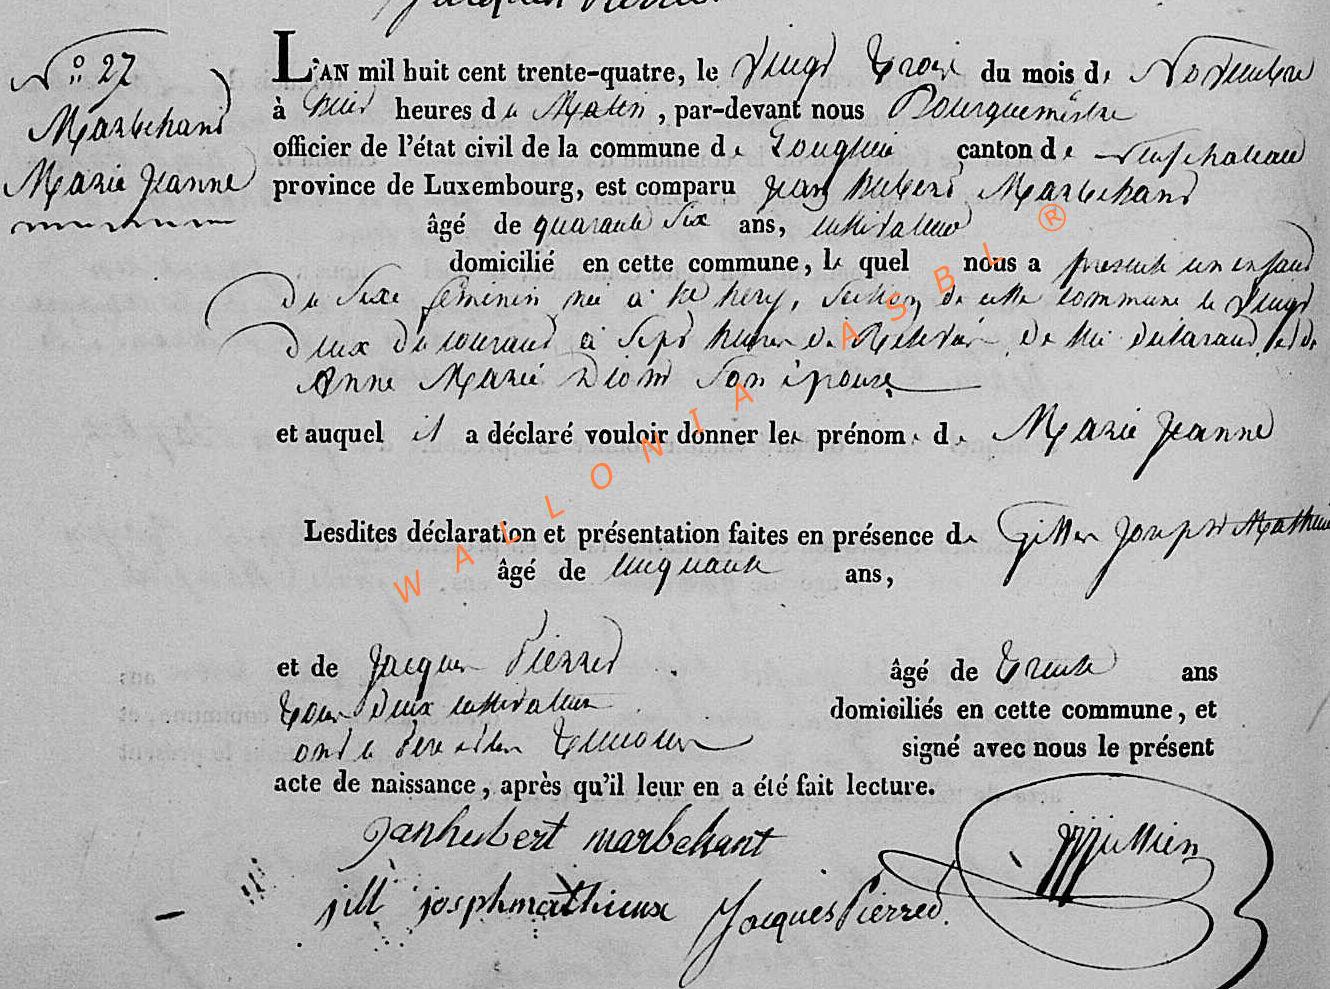 Jacques Pierret
N° 27
Marbehand
Marie Jeanne
L'AN mil huit cent trente-quatre, le Vingt Trois du mois de Novembre
à huit heures du Matin, par-devant nous Bourguemestre
officier de l'état civil de la commune de canton de Neufchateau
province de Luxembourg, est comparu Jean Hubert Marbehand
âgé de quarante Six ans, cultivateur
domicilié en cette commune, le quel nous a presenté un enfant
du Sexe feminin née à Section de cette commune le Vingt
Deux du courant à Sept heures de De lui declarant et de
Anne Marie Son épouse
et auquel il a déclaré vouloir donner les prénoms de Marie Jeanne
Lesdites déclaration et présentation faites en présence de Gilles Joseph Mathieu
âgé de cinquante ans,
et de Jacques Pierret âgé de Trente ans
Tous Deux cultivateurs domiciliés en cette commune, et
ont le Pere et les Temoins signé avec nous le présent
acte de naissance, après qu'il leur en a été fait lecture.
Janhubert marbehant
jill josphmathieux Jacques Pierret
WALLONIA ASBL ®